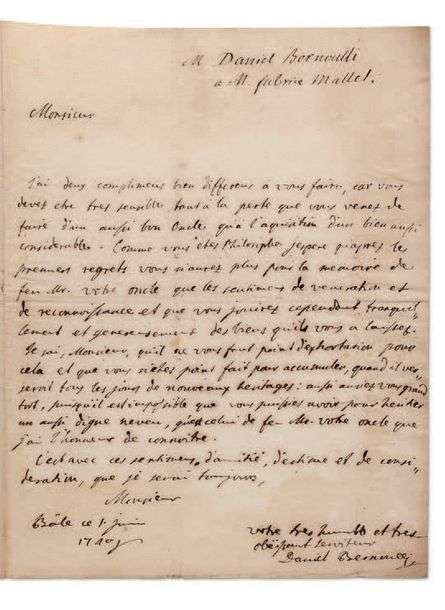 M. Daniel Bernoulli
a M. fabrice Mallet.
Monsieur
J'ai deux complimens bien differens à vous faire, car vous
devez etre tres sensible tant à la perte que vous venez de
faire d'un aussi bon Oncle qu'à l'aquisition d'un bien aussi
considerable. Comme vous etes Philosophe j'espere qu'apres les
premiers regrets vous n'aurez plus pour la memoire de
feu Mr. votre oncle que les sentimens de veneration et
de reconnoissance et que vous jouirez cependant tranquil-
lement et genereusement des biens qu'il vous a laissez.
Je sai, Monsieur, qu'il ne vous faut point d'exhortation pour
cela et que vous n'etes point fait pour accumuler, quand il vous
seroit tous les jours de nouveaux heritages: aussi auriez vous grand
tort, puisqu'il est impossible que vous puissiez avoir pour heritier
un aussi digne neveu, que celui de feu Mr. votre oncle que
j'ai l'honneur de connoitre.
C'est avec ces sentimens d'amitié, d'estime et de consi-
deration, que je serai toujours,
Monsieur
Bâle ce 1. juin
votre tres humble et tres
obeissant serviteur
Daniel Bernoulli